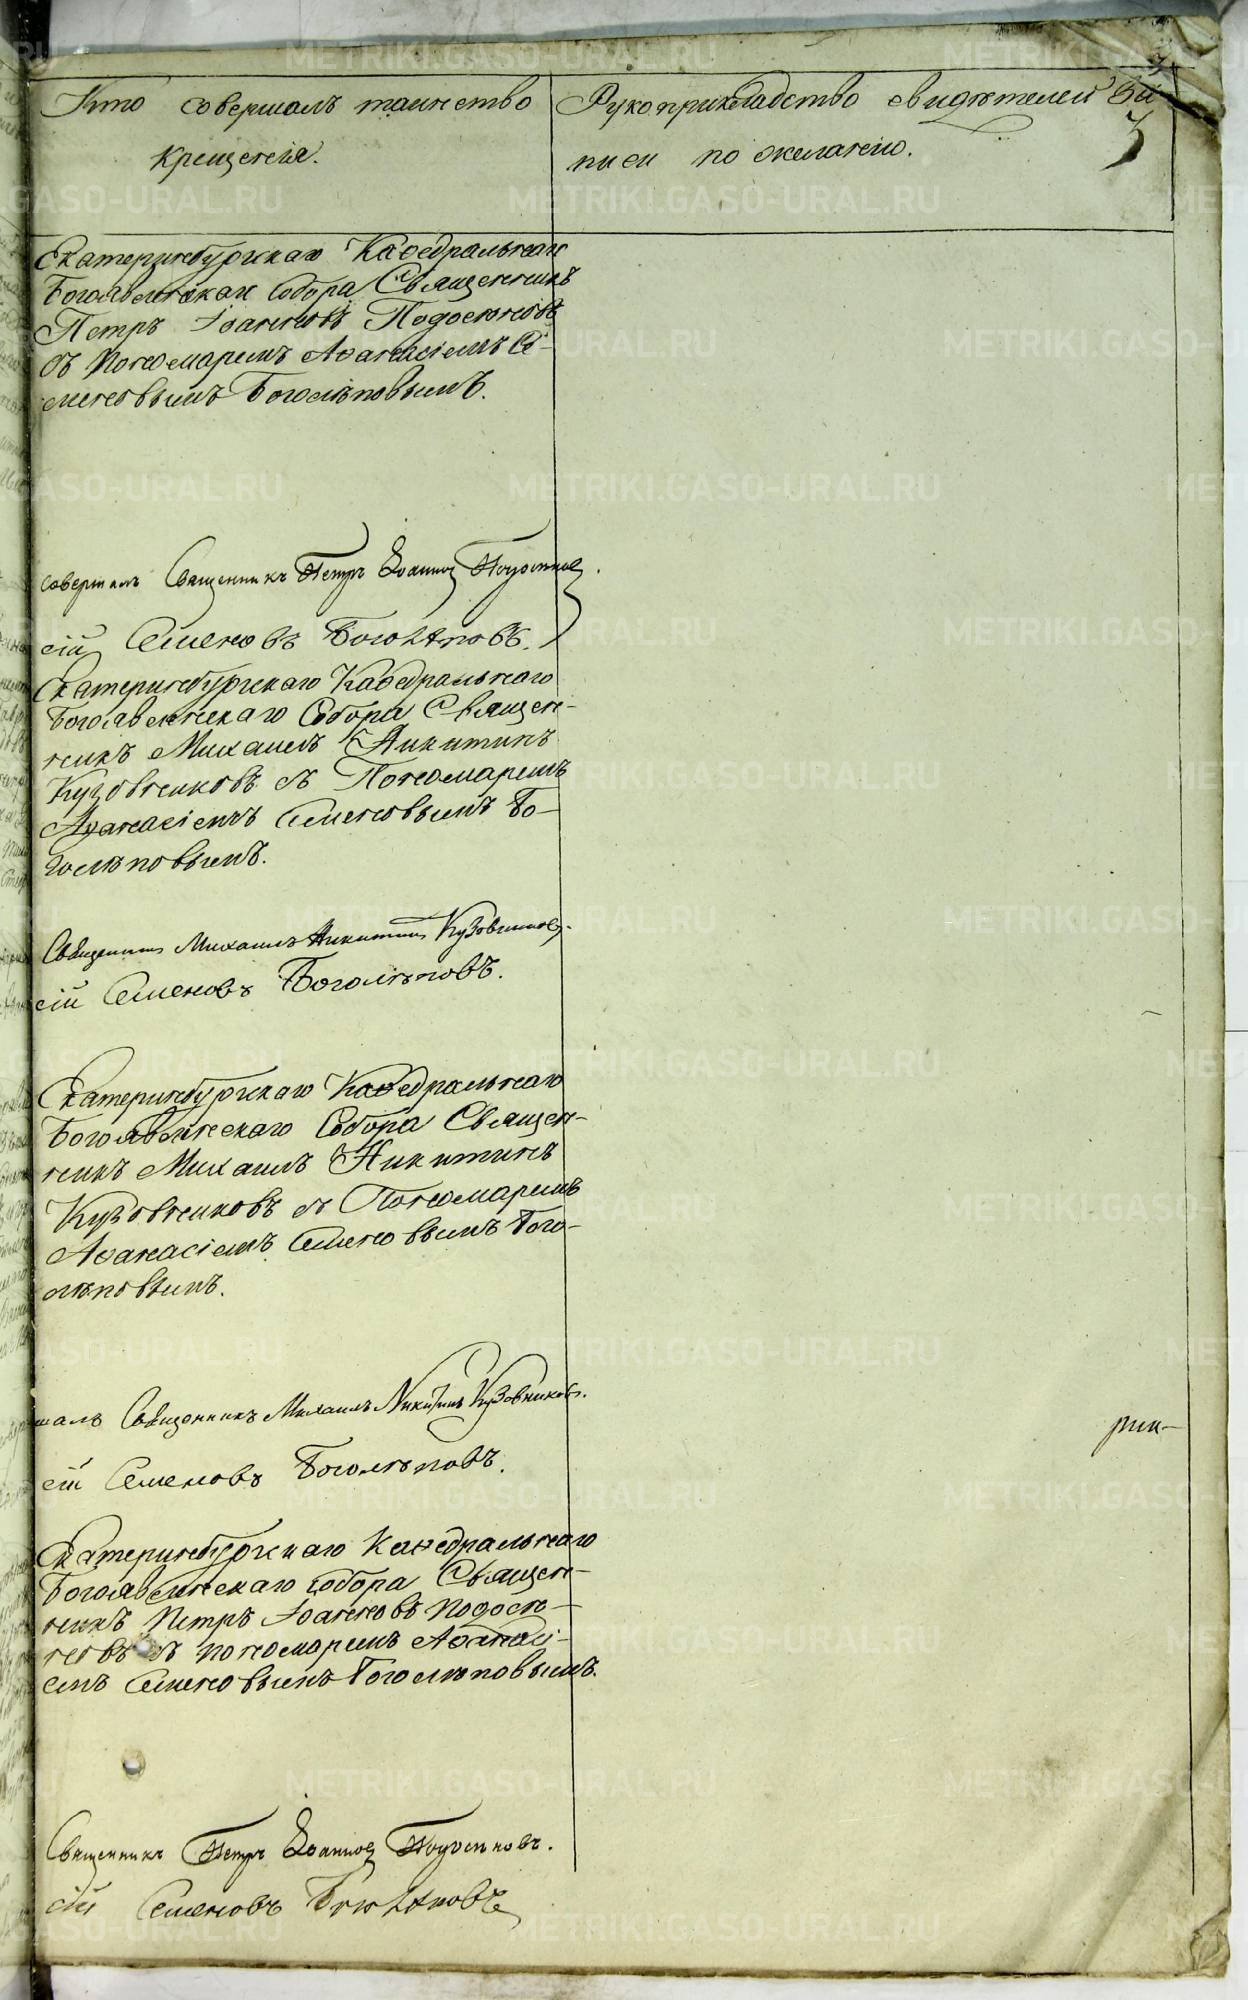 Кто совершалъ таинство
крещенія.
Рукоприкладство свидѣтелей за-
писи по желанію.
3
Екатеринбургскаго Каѳедральнаго
Богоявленскаго Собора Священникъ
Петръ Іоанновъ Подосеновъ
съ Пономаремъ Аѳанасіемъ Се-
меновымъ Боголѣповымъ.
совершалъ Священникъ Петръ Іоанновъ Подосеновъ.
сій Семеновъ Боголѣповъ.
Екатеринбургскаго Каѳедральнаго
Богоявленскаго Собора Священ-
никъ Михаилъ Никитинъ
Кузовниковъ съ Пономаремъ
Аѳанасіемъ Семеновымъ Бо-
голѣповымъ.
Священникъ Михаилъ Никитинъ Кузовниковъ.
сій Семеновъ Боголѣповъ.
Екатеринбургскаго Каѳедральнаго
Богоявленскаго Собора Священ-
никъ Михаилъ Никитинъ
Кузовниковъ съ Пономаремъ
Аѳанасіемъ Семеновымъ Бого-
лѣповымъ.
шалъ Священникъ Михаилъ Никитинъ Кузовниковъ.
сій Семеновъ Боголѣповъ.
Екатеринбургскаго Каѳедральнаго
Богоявленскаго собора Священ-
никъ Петръ Іоанновъ Подосе-
новъ съ пономаремъ Аѳанасі-
емъ Семеновымъ Боголѣповымъ.
Священникъ Петръ Іоанновъ Подосеновъ.
сій Семеновъ Боголѣповъ